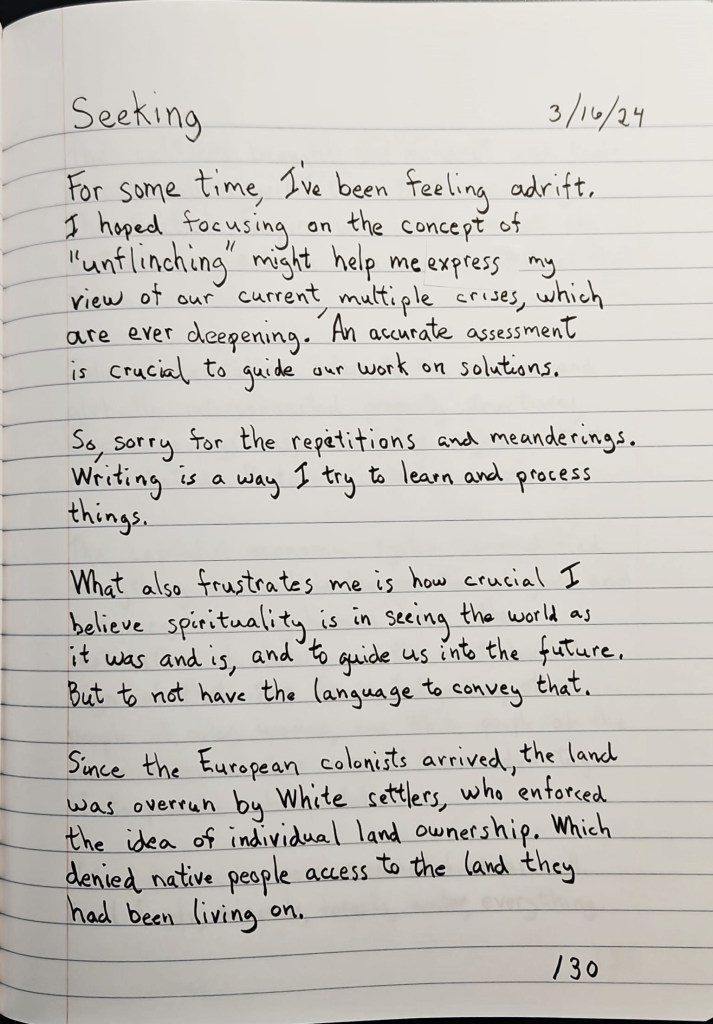 Seeking 3/16/24
For some time, I've been feeling adrift.
I hoped focusing on the concept of
"unflinching" might help me express my
view of our current, multiple crises, which
are ever deepening. An accurate assessment
is crucial to guide our work on solutions.
So, sorry for the repetitions and meanderings.
Writing is a way I try to learn and process
things.
What also frustrates me is how crucial I
believe spirituality is in seeing the world as
it was and is, and to guide us into the future.
But to not have the language to convey that.
Since the European colonists arrived, the land
was overrun by White settlers, who enforced
the idea of individual land ownership. Which
denied native people access to the land they
had been living on.
130